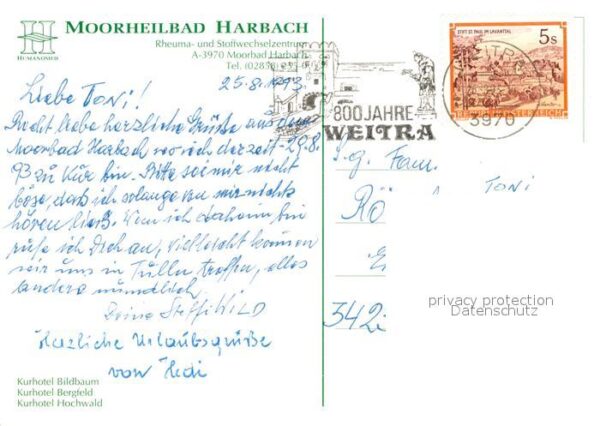 MOORHEILBAD HARBACH
HUMANOMED
Rheuma- und Stoffwechselzentrum
A-3970 Moorbad Harbach
Tel. (02858)
25.8.1993
Liebe Toni!
Recht liebe herzliche Grüße aus dem
Moorbad Harbach wo ich derzeit -29.8.
93 zu Kur bin. Bitte sei mir nicht
böse, daß ich solange von mir nichts
hören ließ. Wenn ich daheim bin
rufe ich Dich an, vielleicht können
wir uns in Tulln treffen, alles
andere mündlich.
Deine Steffi WILD
Herzliche Urlaubsgrüße
von Hedi
Kurhotel Bildbaum
Kurhotel Bergfeld
Kurhotel Hochwald
800 JAHRE
WEITRA
STIFT ST. PAUL IM LAVANTTAL
5s
REPUBLIK ÖSTERREICH
3970
S.g. Fam.
TONI
RÖ
E
342
privacy protection
Datenschutz